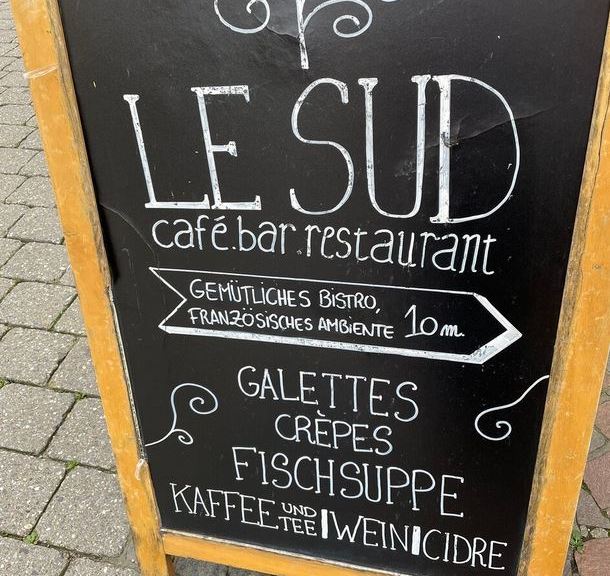 LE SUD
café.bar restaurant
GEMÜTLICHES BISTRO,
FRANZÖSISCHES AMBIENTE 10m.
GALETTES
CRÈPES
FISCHSUPPE
KAFFEE UND TEE | WEIN | CIDRE